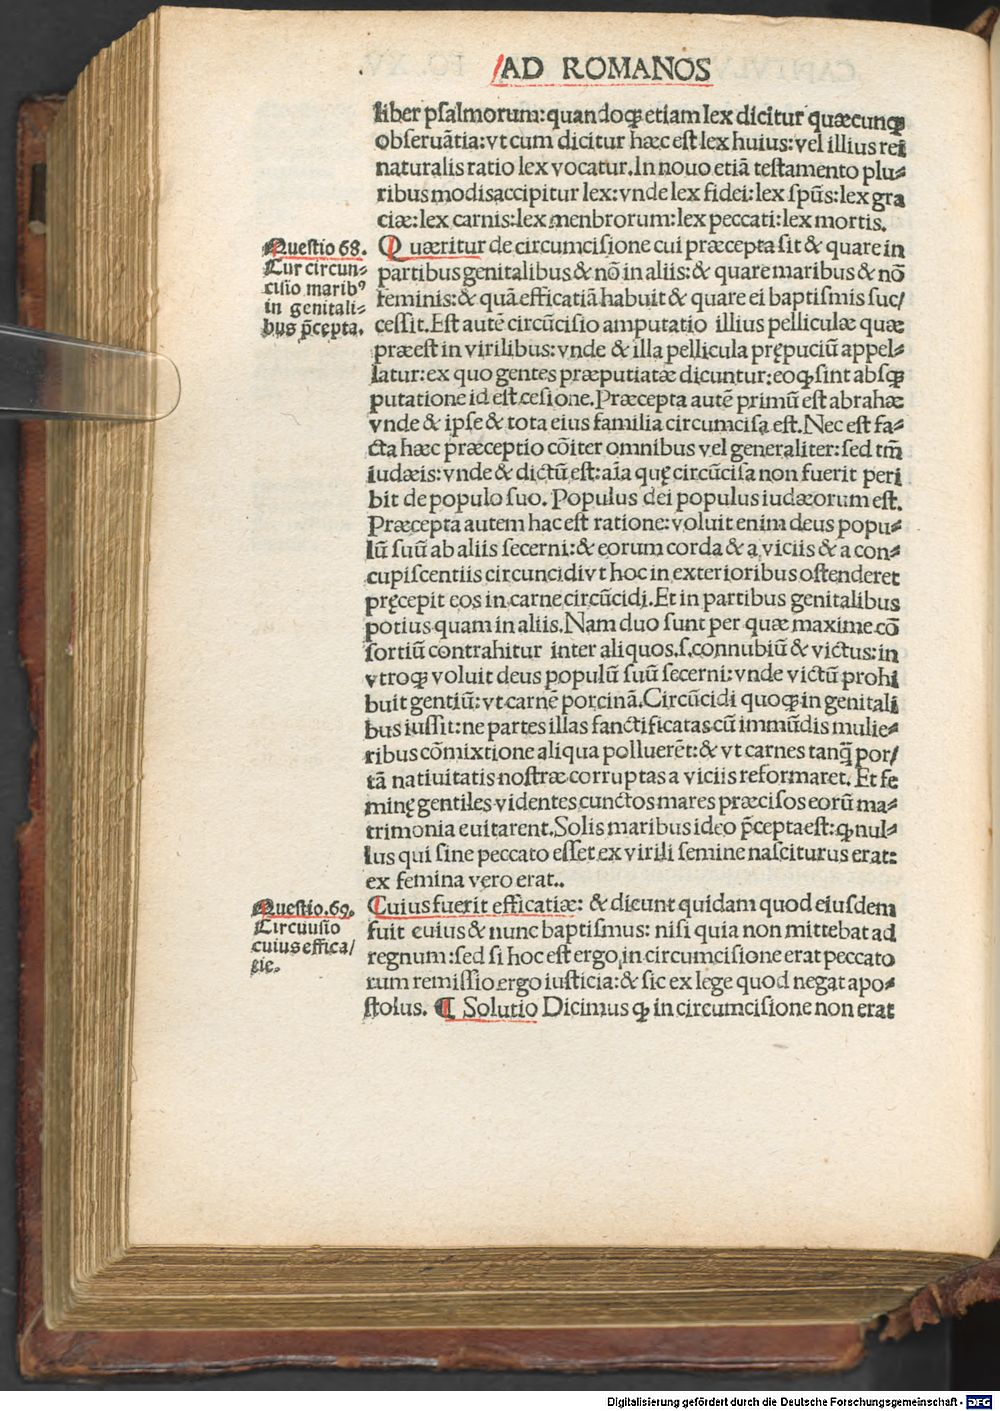 AD ROMANOS
liber pſalmorum: quandoqꝫ etiam lex dicitur quæcunqꝫ
obſeruātia: vt cum dicitur hæc eſt lex huius: vel illius rei
naturalis ratio lex vocatur. In nouo etiā teſtamento plu-
ribus modis accipitur lex: vnde lex fidei: lex ſpūs: lex gra
ciæ: lex carnis: lex menbrorum: lex peccati: lex mortis.
Queſtio 68.
Cur circun-
ciſio maribꝰ
in genitali-
bus p̄cępta.
Quæritur de circumciſione cui præcepta ſit & quare in
partibus genitalibus & nō in aliis: & quare maribus & nō
feminis: & quā efficatiā habuit & quare ei baptiſmis ſuc/
ceſſit. Eſt autē circūciſio amputatio illius pelliculæ quæ
præeſt in virilibus: vnde & illa pellicula prępuciū appel-
latur: ex quo gentes præputiatæ dicuntur: eoqꝫ ſint abſqꝫ
putatione id eſt ceſione. Præcepta autē primū eſt abrahæ
vnde & ipſe & tota eius familia circumciſa eſt. Nec eſt fa-
cta hæc præceptio cōiter omnibus vel generaliter: ſed tm̄
iudæis: vnde & dictū eſt: aīa quę circūciſa non fuerit peri
bit de populo ſuo. Populus dei populus iudæorum eſt.
Præcepta autem hac eſt ratione: voluit enim deus popu-
lū ſuū ab aliis ſecerni: & eorum corda & a viciis & a con-
cupiſcentiis circuncidi vt hoc in exterioribus oſtenderet
pręcepit eos in carne circūcidi. Et in partibus genitalibus
potius quam in aliis. Nam duo ſunt per quæ maxime cō
ſortiū contrahitur inter aliquos. ſ. connubiū & victus: in
vtroqꝫ voluit deus populū ſuū ſecerni: vnde victū prohi
buit gentiū: vt carnē porcinā. Circūcidi quoqꝫ in genitali
bus iuſſit: ne partes illas ſanctificatas cū immūdis mulie-
ribus cōmixtione aliqua polluerēt: & vt carnes tanq̄ por/
tā natiuitatis noſtræ corruptas a viciis reformaret. Et fe
minę gentiles videntes cunctos mares præciſos eorū ma-
trimonia euitarent. Solis maribus ideo p̄cepta eſt: ꝙ nul-
lus qui ſine peccato eſſet ex virili ſemine naſciturus erat:
ex femina vero erat..
Queſtio. 69.
Circuuſio
cuius effica/
cie.
Cuius fuerit efficatiæ: & dicunt quidam quod eiuſdem
fuit cuius & nunc baptiſmus: niſi quia non mittebat ad
regnum: ſed ſi hoc eſt ergo in circumciſione erat peccato
rum remiſſio ergo iuſticia: & ſic ex lege quod negat apo-
ſtolus. ¶ Solutio Dicimus ꝙ in circumciſione non erat
Digitalisierung gefördert durch die Deutsche Forschungsgemeinschaft - DFG